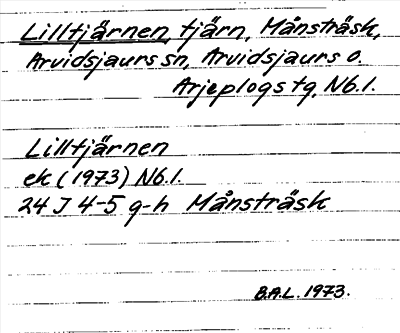 Lilltjärnen, tjärn, Månsträsk,
Arvidsjaurs sn, Arvidsjaurs o.
Arjeplogs tg, Nb.l.
Lilltjärnen
ek (1973) Nb.l.
24 J 4-5 g-h Månsträsk
B.A.L. 1973.